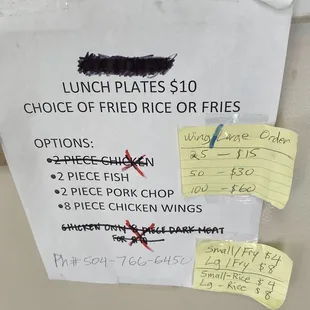 LUNCH PLATES $10
CHOICE OF FRIED RICE OR FRIES
OPTIONS:
•2 PIECE CHICKEN
•2 PIECE FISH
•2 PIECE PORK CHOP
•8 PIECE CHICKEN WINGS
CHICKEN ONLY 8 PIECE DARK MEAT
FOR
Ph# 504-766-6450
Wing Large Order
25 - $15
50 - $30
100 - $60
Small/Fry $4
Lg/Fry $8
Small-Rice $4
Lg-Rice $8